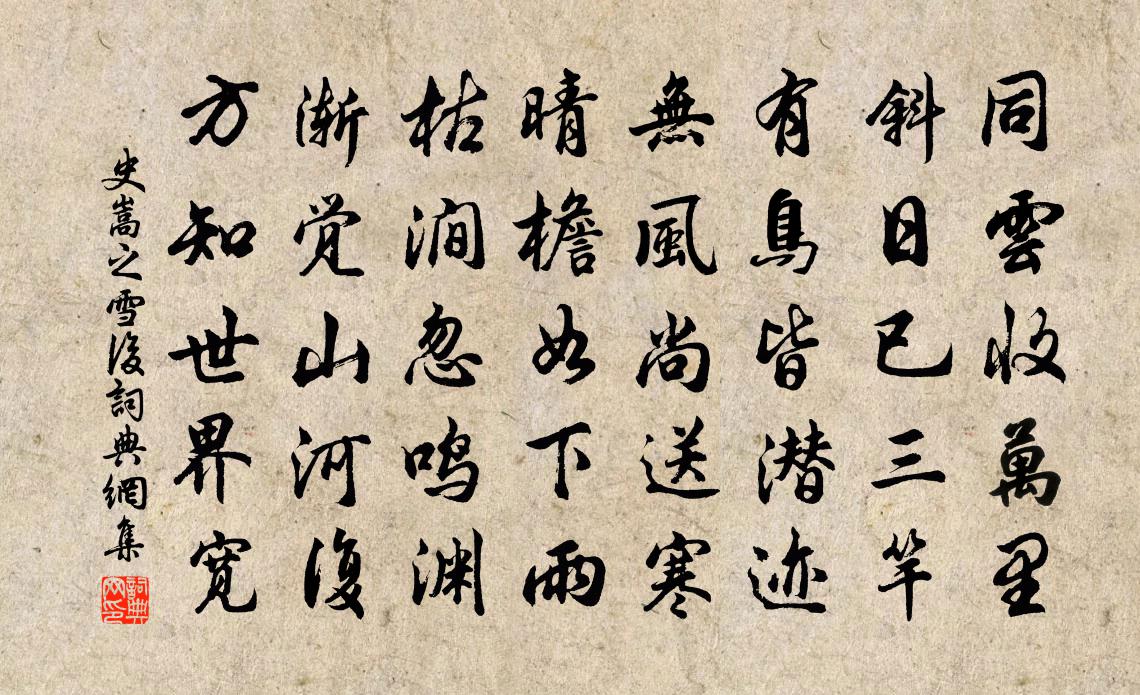 同雲收萬里
斜日已三竿
有鳥皆潜迹
無風尚送寒
晴檐如下雨
枯澗忽鸣渊
渐觉山河復
方知世界寛
史嵩之雪後詞典網集
詞典
网印